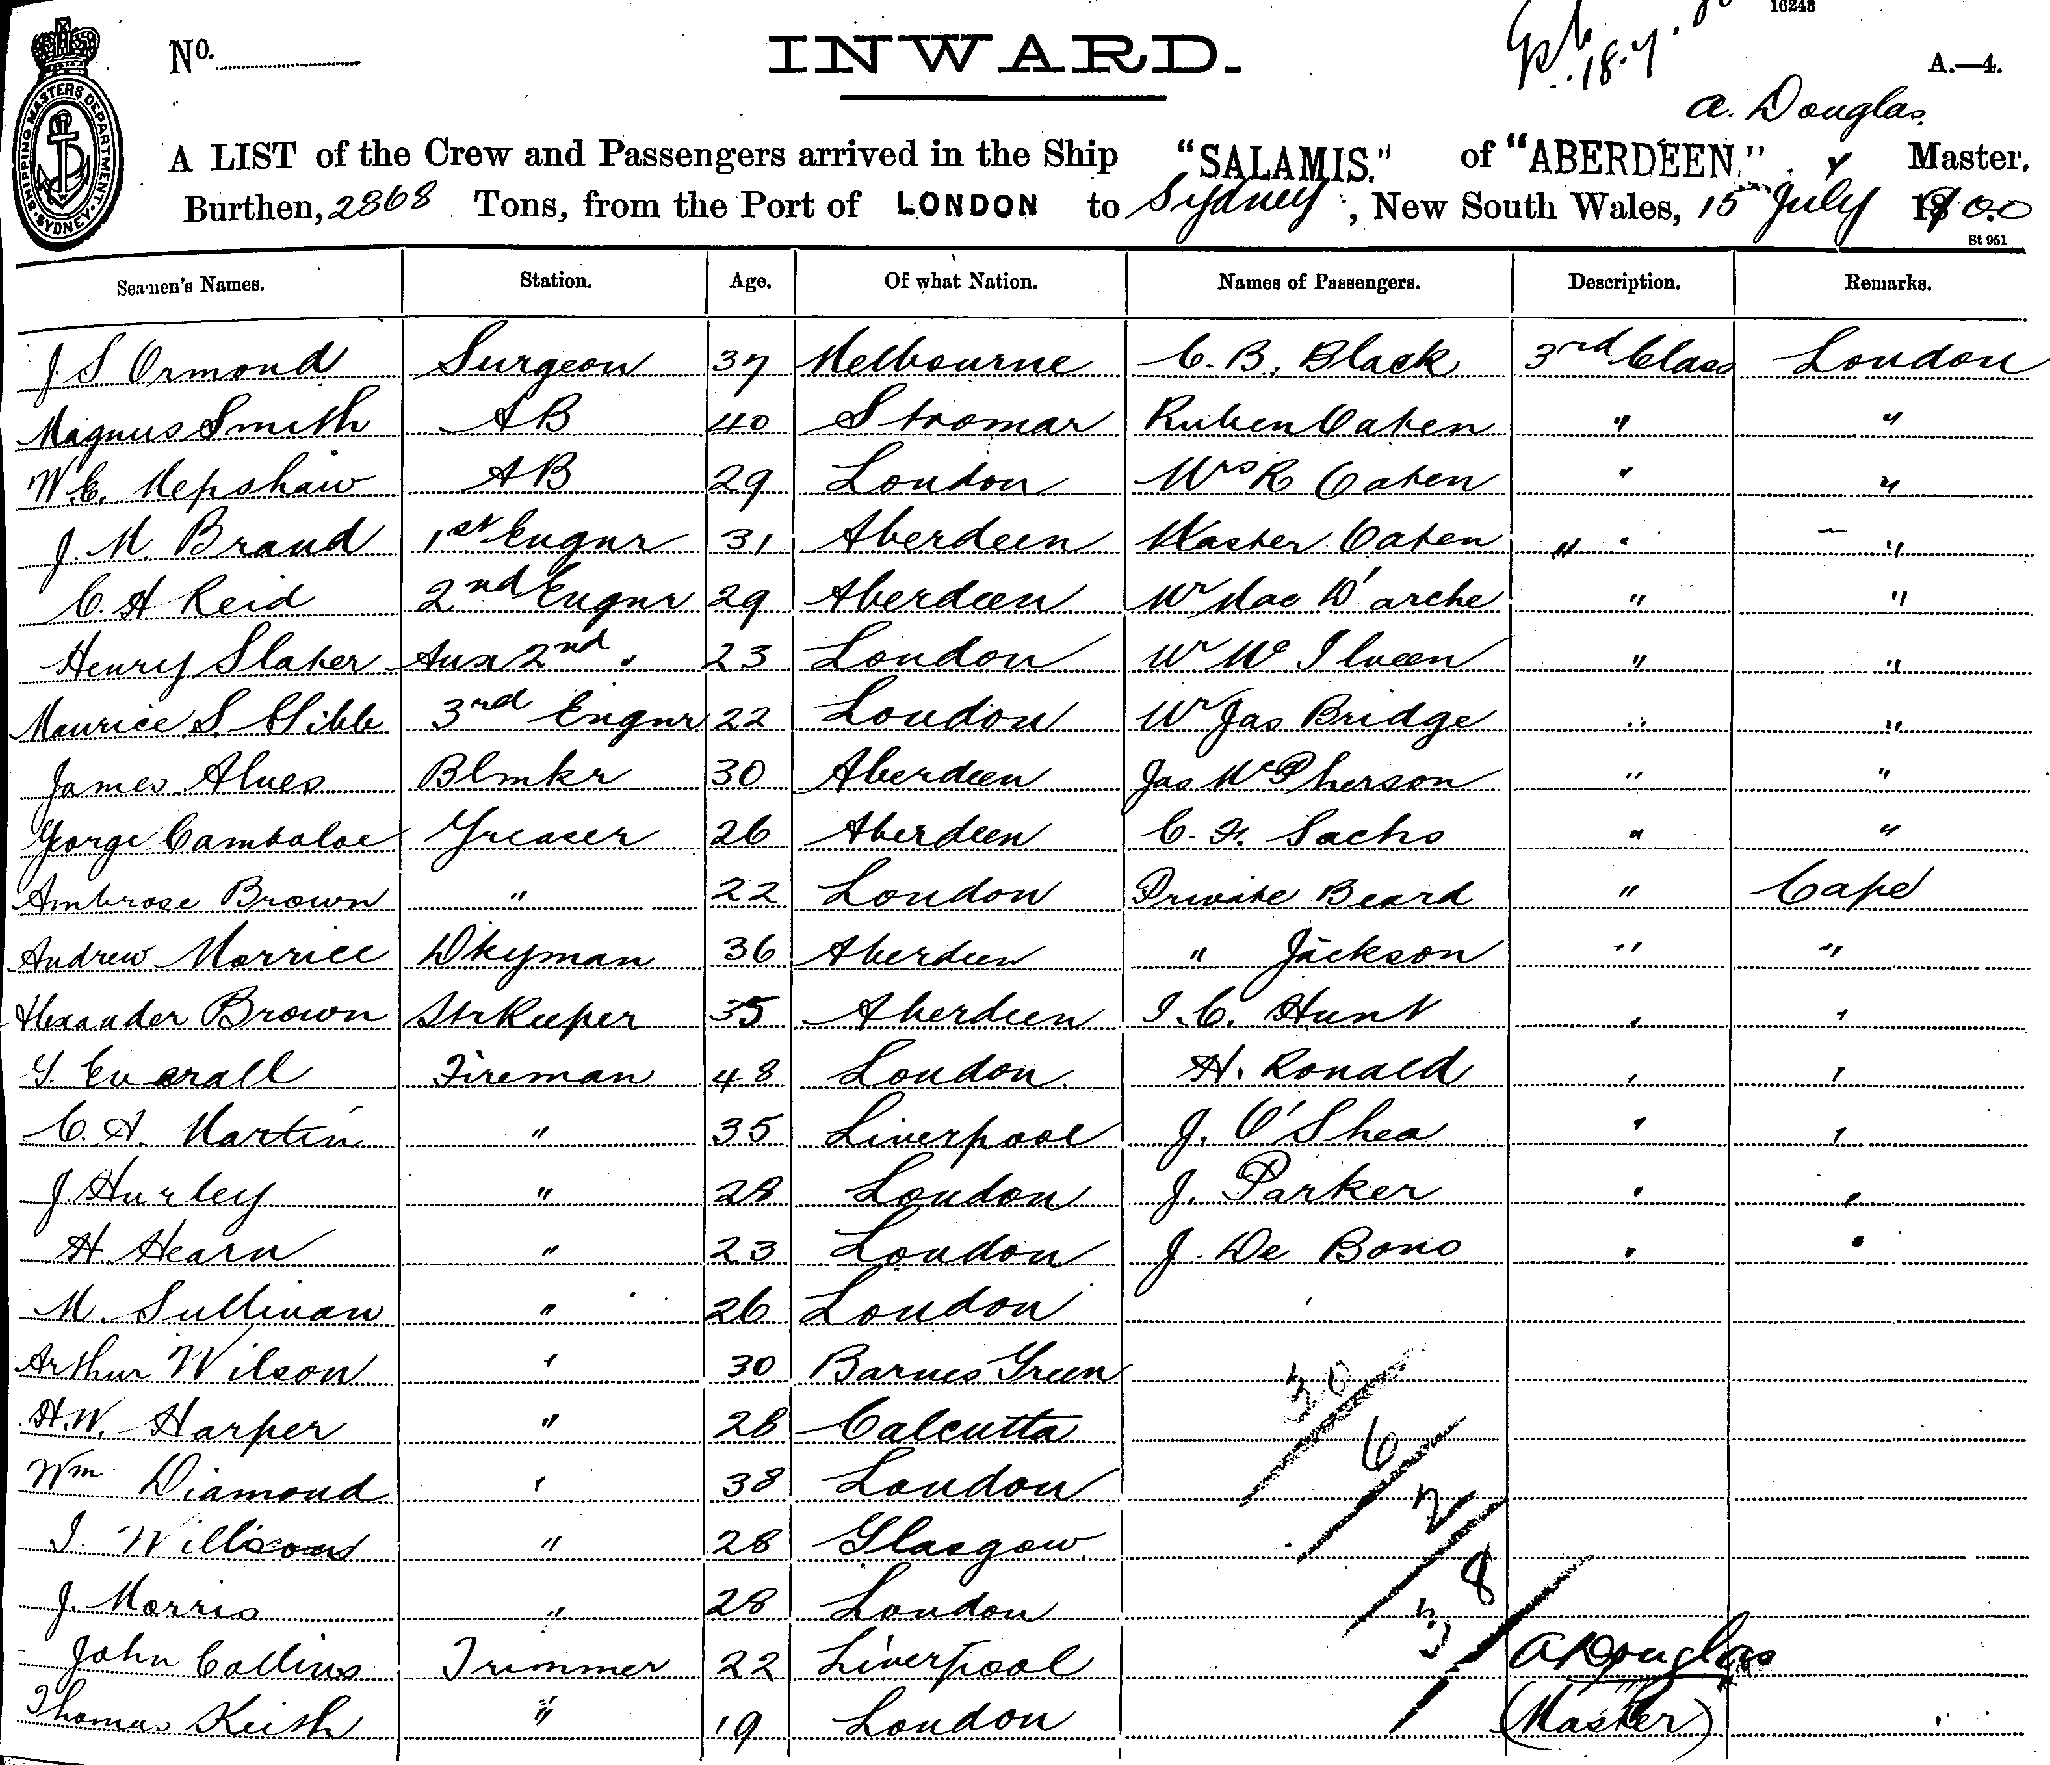 16248
No.
INWARD.
18.7.
A.—4.
A. Douglas
A LIST of the Crew and Passengers arrived in the Ship "SALAMIS." of "ABERDEEN." Master.
Burthen, 2868 Tons, from the Port of LONDON to Sydney, New South Wales, 15th July 1900
St 961
SHIPPING MASTERS DEPARTMENT SYDNEY
Seamen's Names. Station. Age. Of what Nation. Names of Passengers. Description. Remarks.
J S Ormond Surgeon 37 Melbourne C. B. Black 3rd Class London
Magnus Smith AB 40 Stromar Ruben Oaten " "
W.C. Mepshaw AB 29 London Mrs R Oaten " "
J. M. Brand 1st Engnr 31 Aberdeen Master Oaten " "
C. H Reid 2nd Engnr 29 Aberdeen Mr Mac D'arche " "
Henry Slater Aux 2nd " 23 London Mr Mc Ilveen " "
Maurice S. Gibb 3rd Engnr 22 London Mr Jas Bridge " "
James Alves Blmkr 30 Aberdeen Jas McPherson " "
George Cambaloe Greaser 26 Aberdeen C. F. Sachs " "
Ambrose Brown " 22 London Private Beard " Cape
Andrew Morrice Dkyman 36 Aberdeen " Jackson " "
Alexander Brown StrKeeper 35 Aberdeen I. C. Hunt " "
Everall Fireman 48 London H. Ronald " "
C. A. Martin " 35 Liverpool J. O'Shea " "
J Hurley " 28 London J. Parker " "
H. Hearn " 23 London J. De Bono " "
M. Sullivan " 26 London
Arthur Wilson " 30 Barnes Green
H.W. Harper " 28 Calcutta
Wm Diamond " 38 London
" 28 Glasgow
J. Morris " 28 London
John Collins Trimmer 22 Liverpool
Thomas Keith " 19 London
30
6
2
38
A Douglas
(Master)